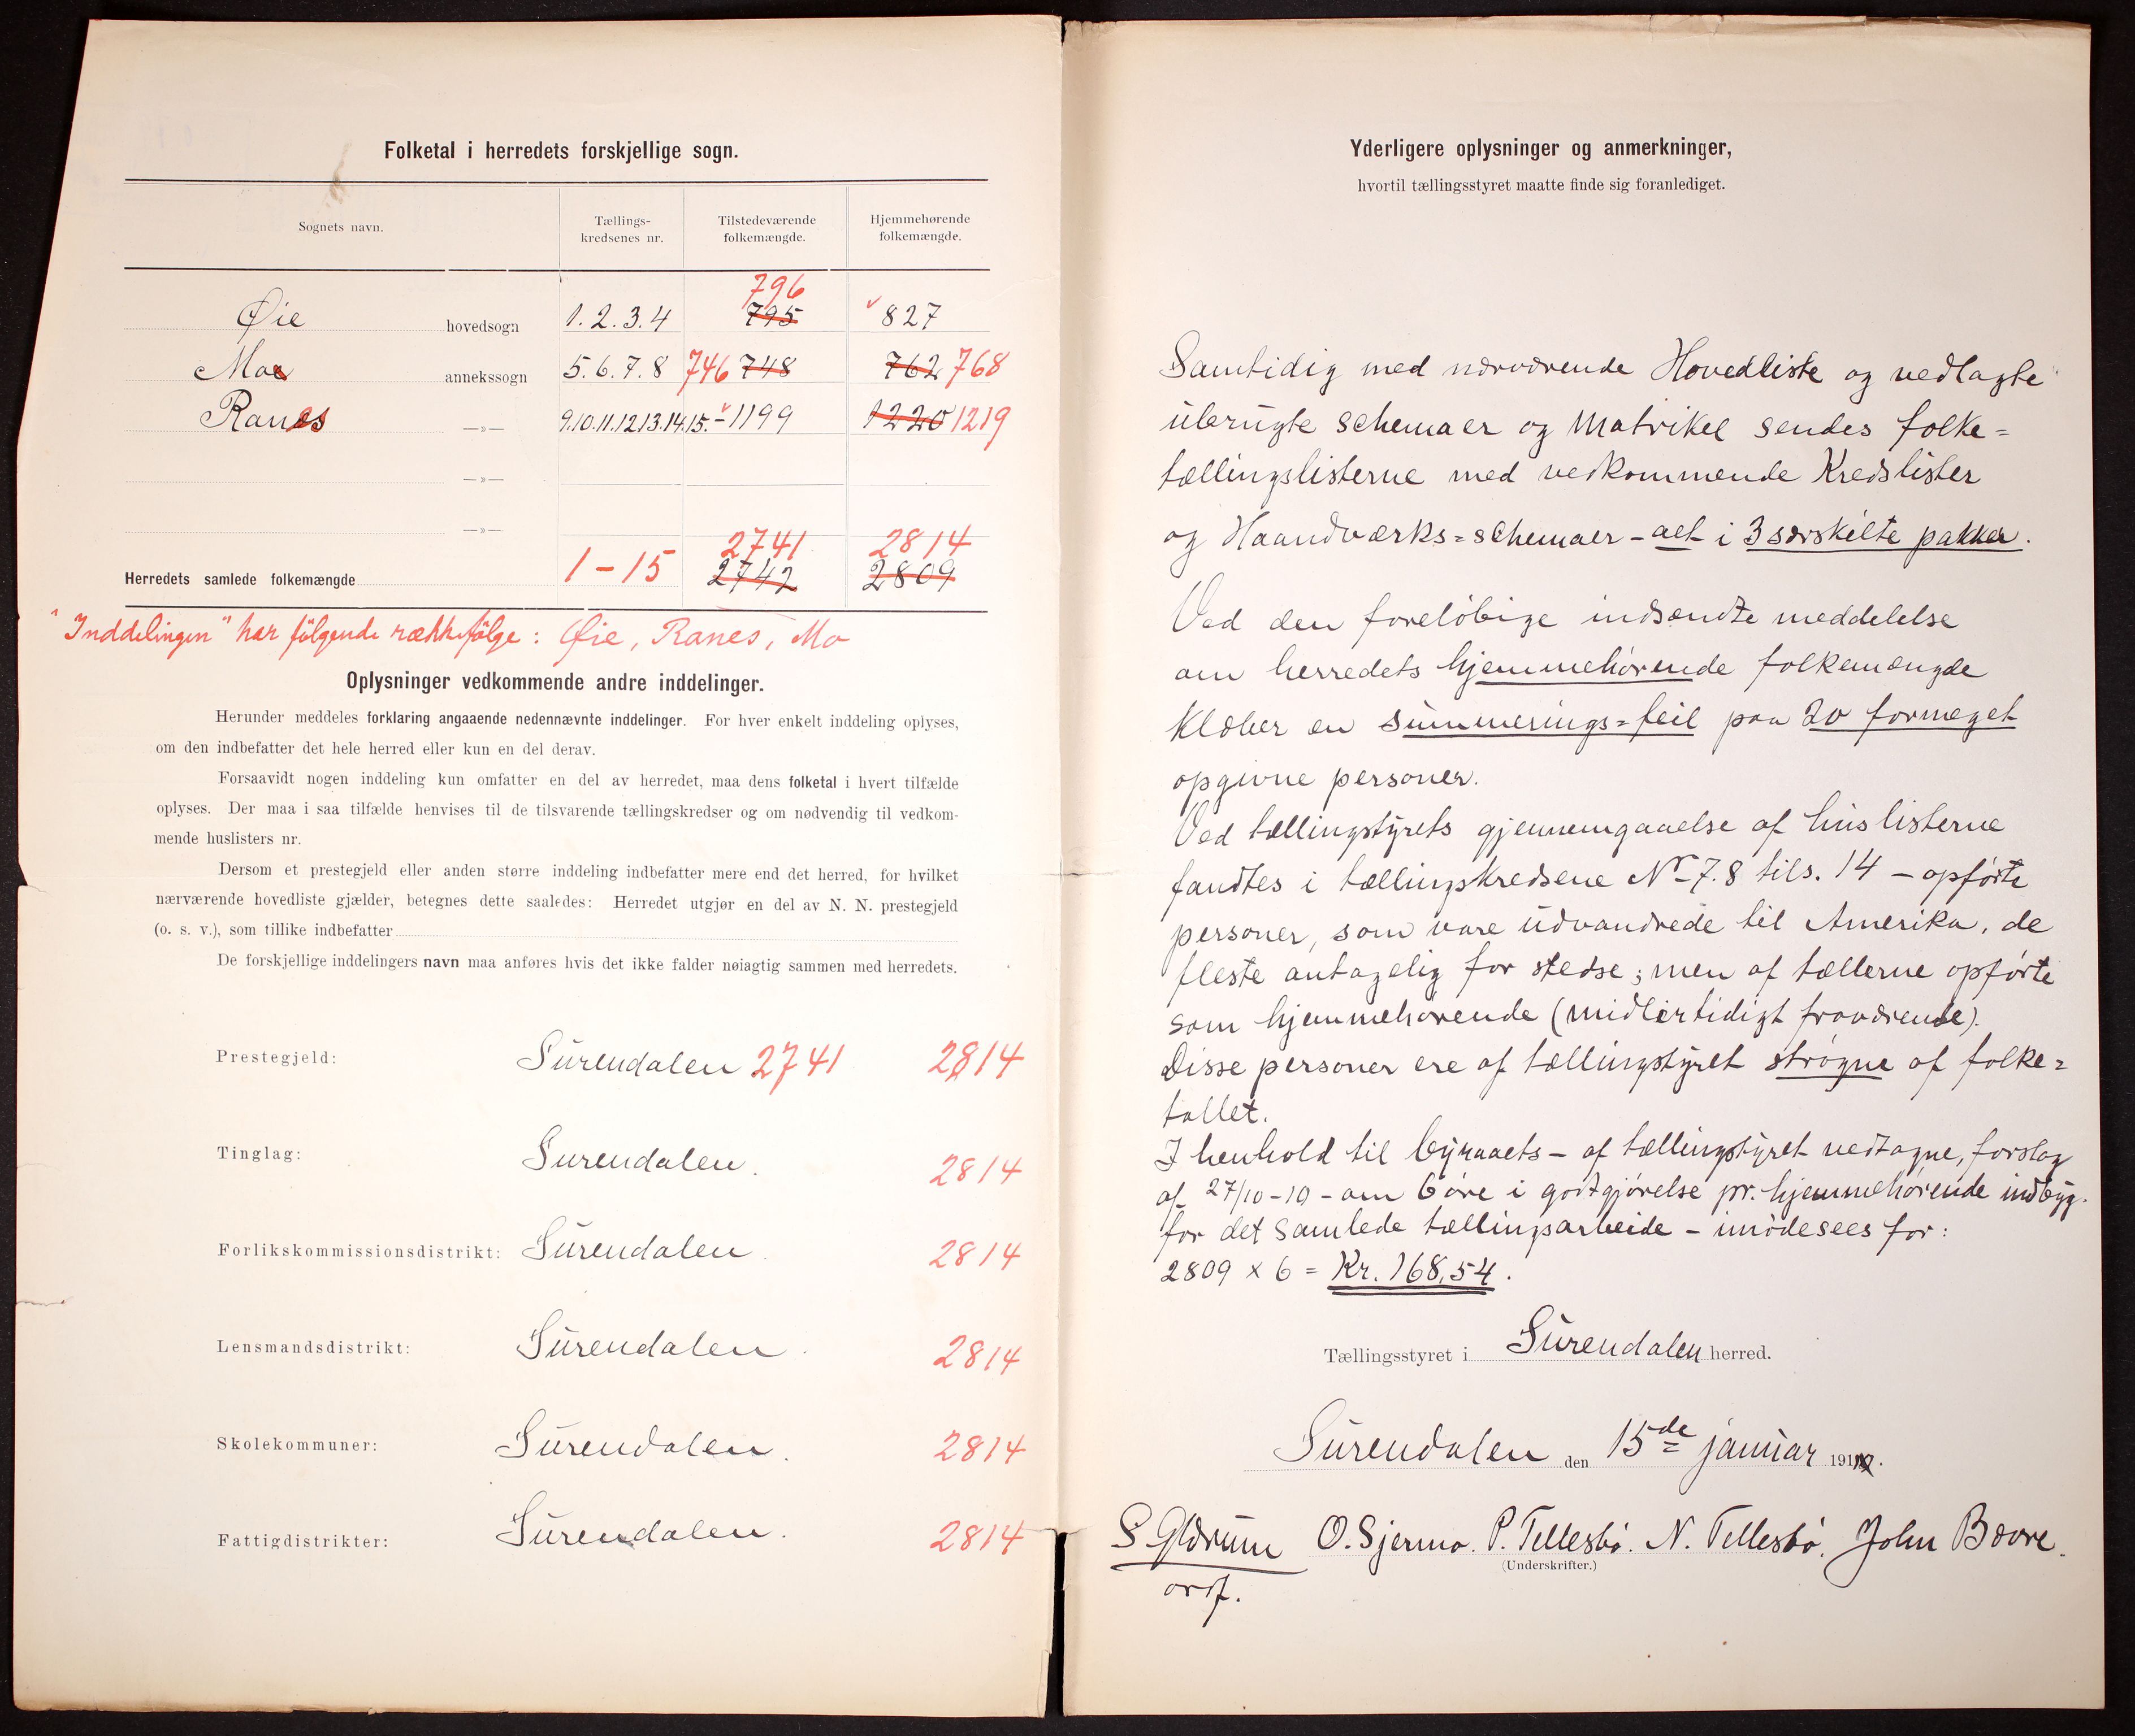 Folketal i herredets forskjellige sogn.
Sognets navn. Tællings-kredsenes nr. Tilstedeværende folkemængde. Hjemmehørende folkemængde.
796
Øie hovedsogn 1.2.3.4 795 827
Moe annekssogn 5.6.7.8 746 748 762 768
Ranes —»— 9.10.11.12.13.14.15. 1199 1220 1219
—»—
—»—
2741 2814
Herredets samlede folkemængde 1-15 2742 2809
"Inddelingen" har følgende rækkefølge: Øie, Ranes, Mo
Oplysninger vedkommende andre inddelinger.
Herunder meddeles forklaring angaaende nedennævnte inddelinger. For hver enkelt inddeling oplyses,
om den indbefatter det hele herred eller kun en del derav.
Forsaavidt nogen inddeling kun omfatter en del av herredet, maa dens folketal i hvert tilfælde
oplyses. Der maa i saa tilfælde henvises til de tilsvarende tællingskredser og om nødvendig til vedkom-
mende huslisters nr.
Dersom et prestegjeld eller anden større inddeling indbefatter mere end det herred, for hvilket
nærværende hovedliste gjælder, betegnes dette saaledes: Herredet utgjør en del av N. N. prestegjeld
(o. s. v.), som tillike indbefatter
De forskjellige inddelingers navn maa anføres hvis det ikke falder nøiagtig sammen med herredets.
Prestegjeld: Surendalen 2741 2814
Tinglag: Surendalen. 2814
Forlikskommissionsdistrikt: Surendalen. 2814
Lensmandsdistrikt: Surendalen. 2814
Skolekommuner: Surendalen. 2814
Fattigdistrikter: Surendalen. 2814
Yderligere oplysninger og anmerkninger,
hvortil tællingsstyret maatte finde sig foranlediget.
Samtidig med nærværende Hovedliste og vedlagte
ubrugte schemaer og Matrikel sendes folke=
tællingslisterne med vedkommende Kredslister
og Haandværks=schemaer - alt i 3 særskilte pakker.
Ved den foreløbige indsendte meddelelse
om herredets hjemmehørende folkemængde
klæber en summerings=feil paa 20 formeget
opgivne personer.
Ved tællingstyrets gjennemgaaelse af huslisterne
fandtes i tællingskredsene Nr 7.8 tils. 14 - opførte
personer, som vare udvandrede til Amerika, de
fleste antagelig for stedse; men af tællerne opførte
som hjemmehørende (midlertidigt fraværende).
Disse personer ere af tællingstyret strøgne af folke=
tallet.
I henhold til byraaets - af tællingstyret vedtagne, forslag
af 27/10-10 - om 6 øre i godtgjørelse pr. hjemmehørende indbyg.
for det samlede tællingsarbeide - imødesees for:
2809 x 6 = Kr. 168,54.
Tællingsstyret i Surendalen herred.
Surendalen den 15de januar 1911.
S Glærum O. Sjermo. P. Tellesbø. N. Tellesbø. John Bævre.
(Underskrifter.)
ordf.